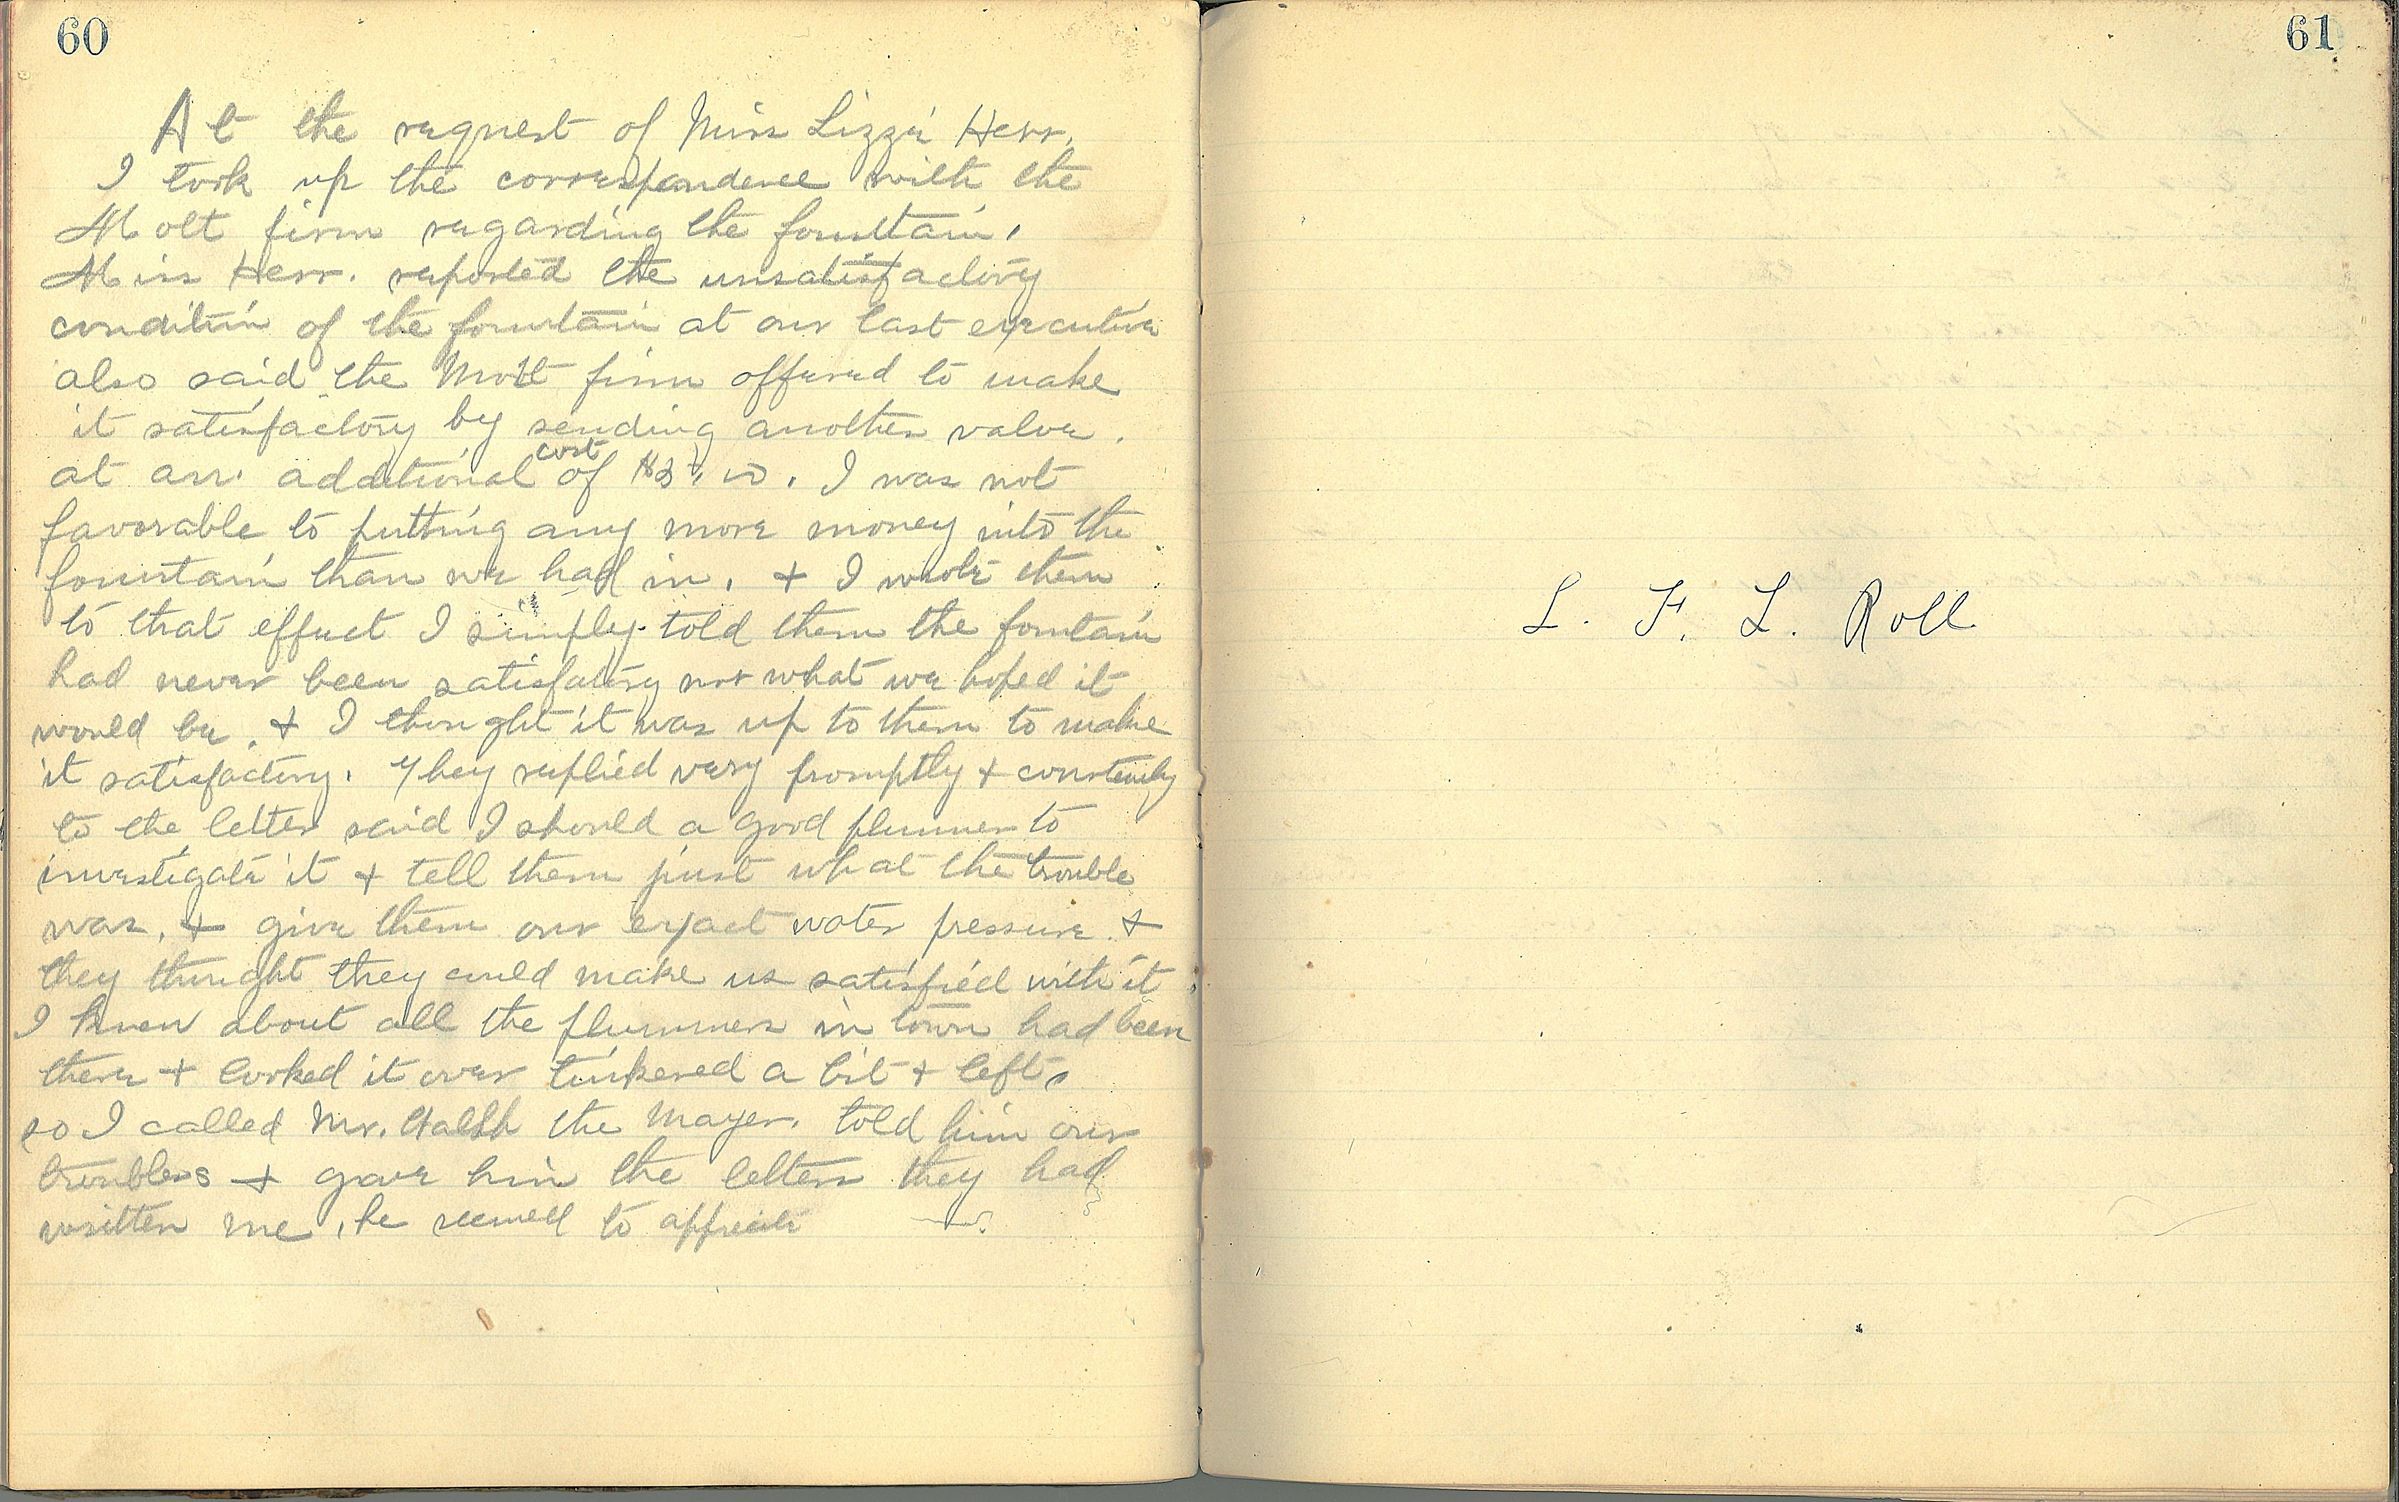 60
At the request of Miss Lizzie Herr.
I took up the correspondence with the
Mott firm regarding the fountain.
Miss Herr. reported the unsatisfactory
condition of the fountain at our last executive
also said the Mott firm offered to make
it satisfactory by sending another valve.
at an. additional cost of I was not
favorable to putting any more money into the
fountain than we had in. + I wrote them
to that effect I simply told them the fountain
had never been satisfactory nor what we hoped it
would be. + I thought it was up to them to make
it satisfactory. They replied very promptly +
to the letter said I should a good plummer to
investigate it + tell them just what the trouble
was. + give them our exact water pressure. +
they thought they could make us satisfied with it.
I knew about all the plummers in town had been
there + looked it over tinkered a bit + left.
so I called Mr. the Mayer. told him our
troubles + gave him the letters they had
written me, he seemed to
61
L. F. L. Roll